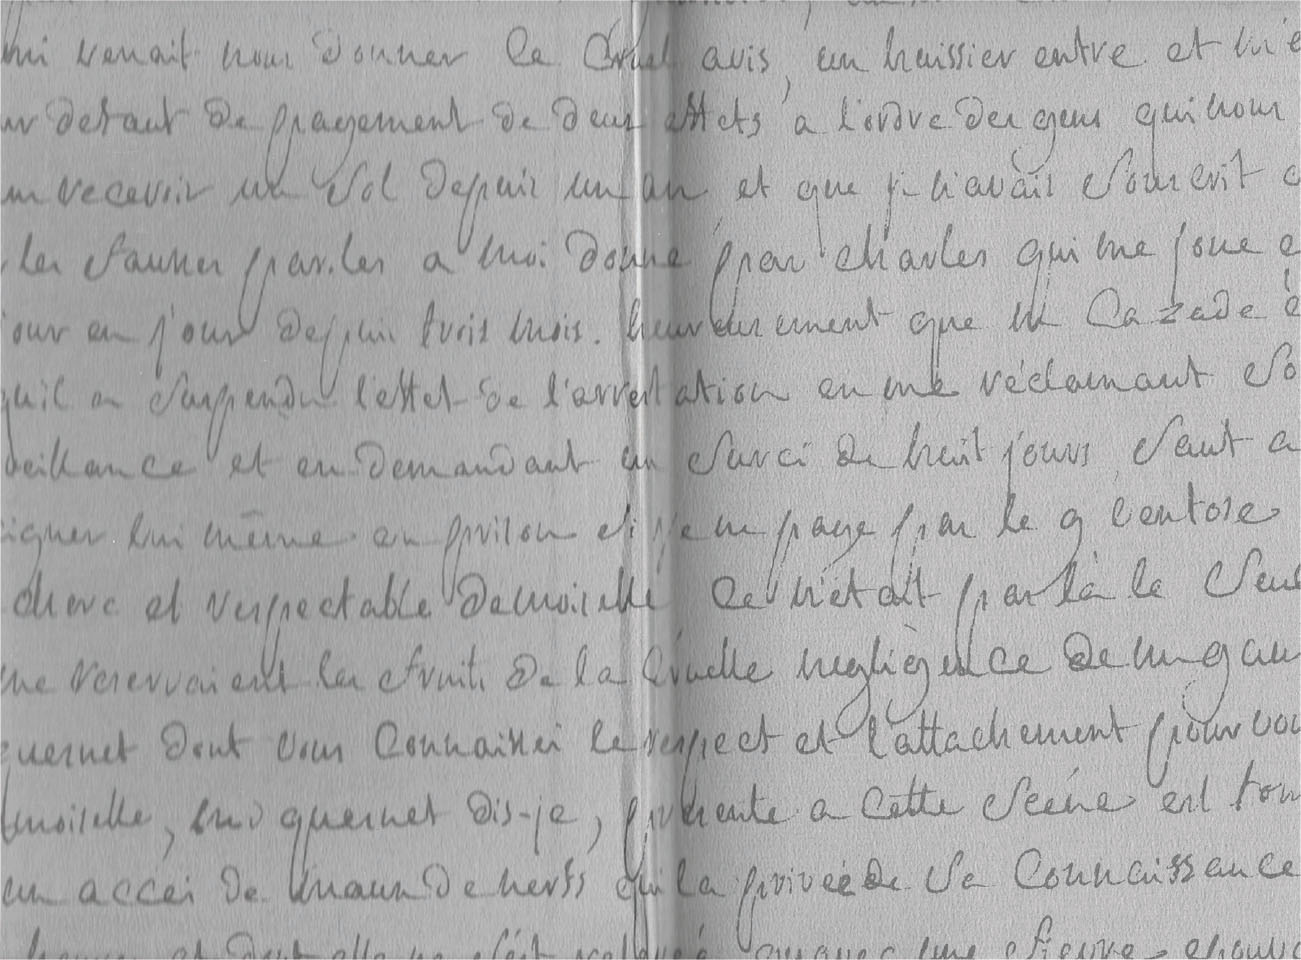 venait nous donner ce cruel avis, un huissier entre et
defaut de payement de deux effets a l'ordre des gens qui nous
recevoir un sol depuis un an et que j'avais souscrit
les fausses paroles a moi donné par charles qui me joue
jour en jour depuis trois mois. heureusement que M Cazade
quil a suspendu l'effet de l'arrestation en me réclamant
veillance et en demandant un sursi de huit jours, sauf a
lui même en prison si je ne paye par le 9 ventose
chere et respectable demoiselle ce n'etait par là le
me reservaient les fruits de la cruelle negligence de
quernet dont vous connaissez le respect et l'attachement pour
moiselle, quernet dis-je, presente a cette scéne est
un accèi de maux de nerfs qui la privée de sa connaissance
et dont elle une fievre